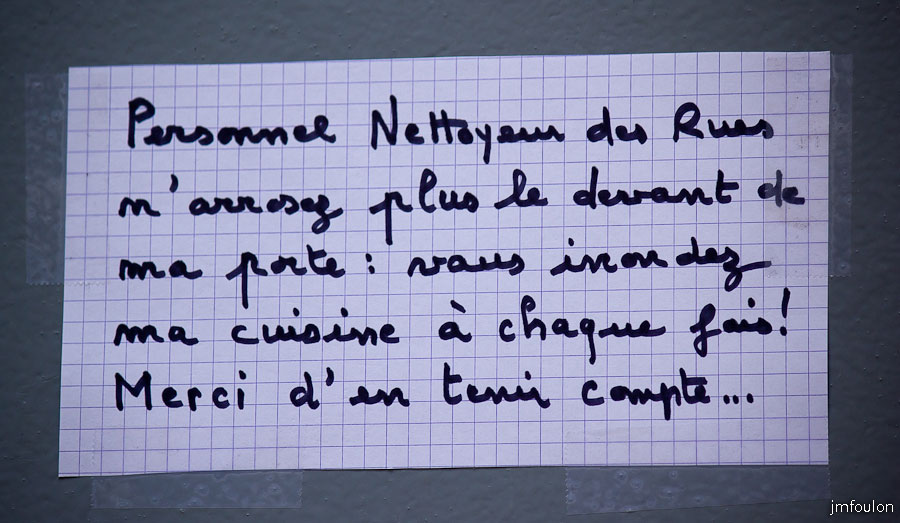 Personnel Nettoyeur des Rues
n'arrosez plus le devant de
ma porte : vous inondez
ma cuisine à chaque fois !
Merci d'en tenir compte...
jmfoulon